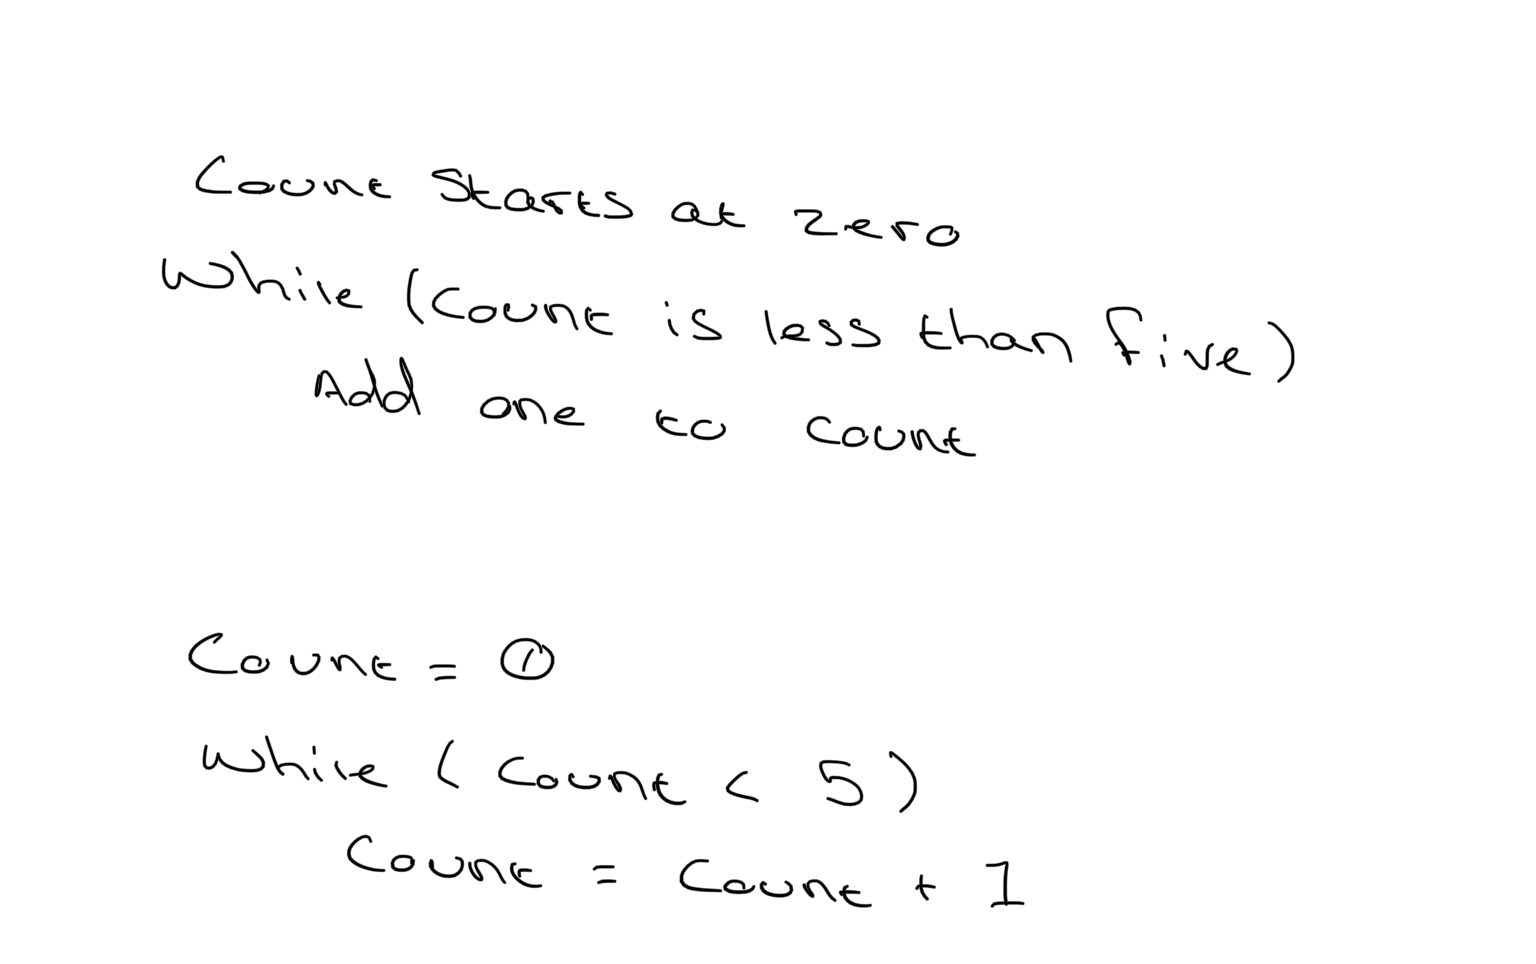 Count Starts at zero
While (Count is less than five)
Add one to count
Count = 0
While ( Count < 5 )
Count = Count + 1